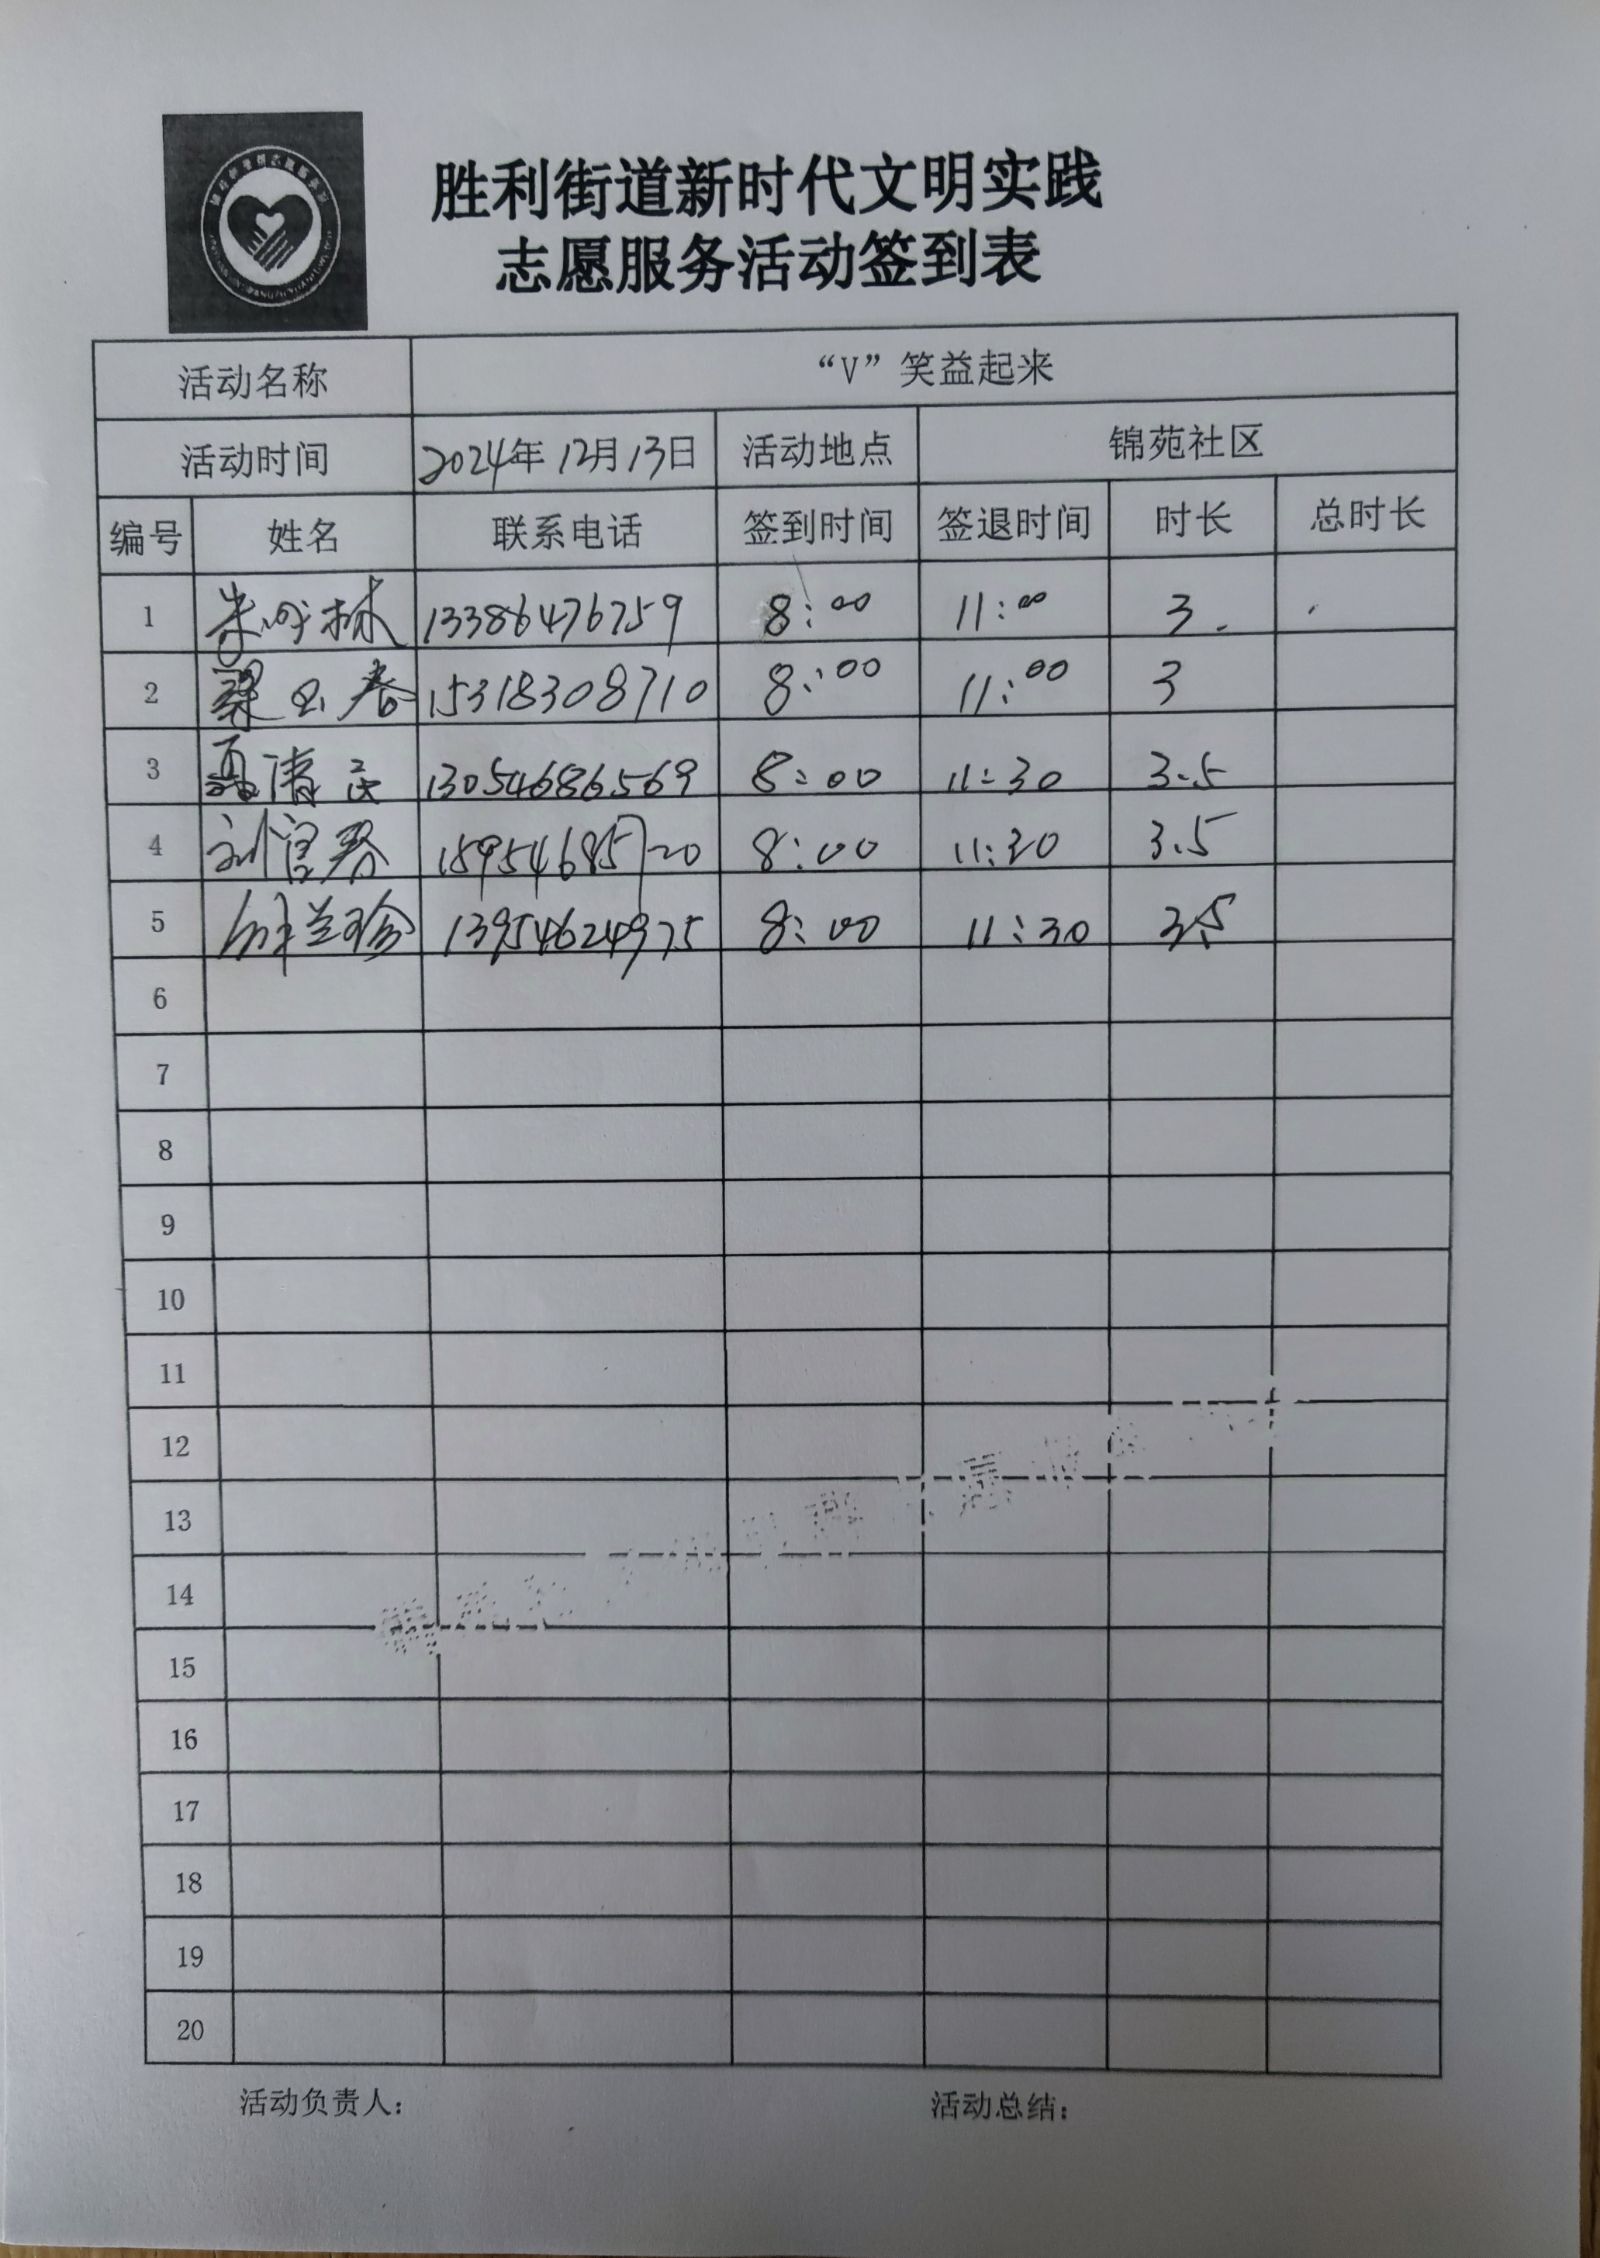 胜利街道新时代文明实践
志愿服务活动签到表
活动名称 “V”笑益起来
活动时间 2024年12月13日 活动地点 锦苑社区
编号 姓名 联系电话 签到时间 签退时间 时长 总时长
1 林 13386476759 8:00 11:00 3.
2 梁玉春 15318308710 8:00 11:00 3
3 聂清民 13054686569 8:00 11:30 3.5
4 刘官琴 15954685720 8:00 11:30 3.5
5 兰珍 13954624975 8:00 11:30 3.5
6
7
8
9
10
11
12
13
14
15
16
17
18
19
20
活动负责人： 活动总结：